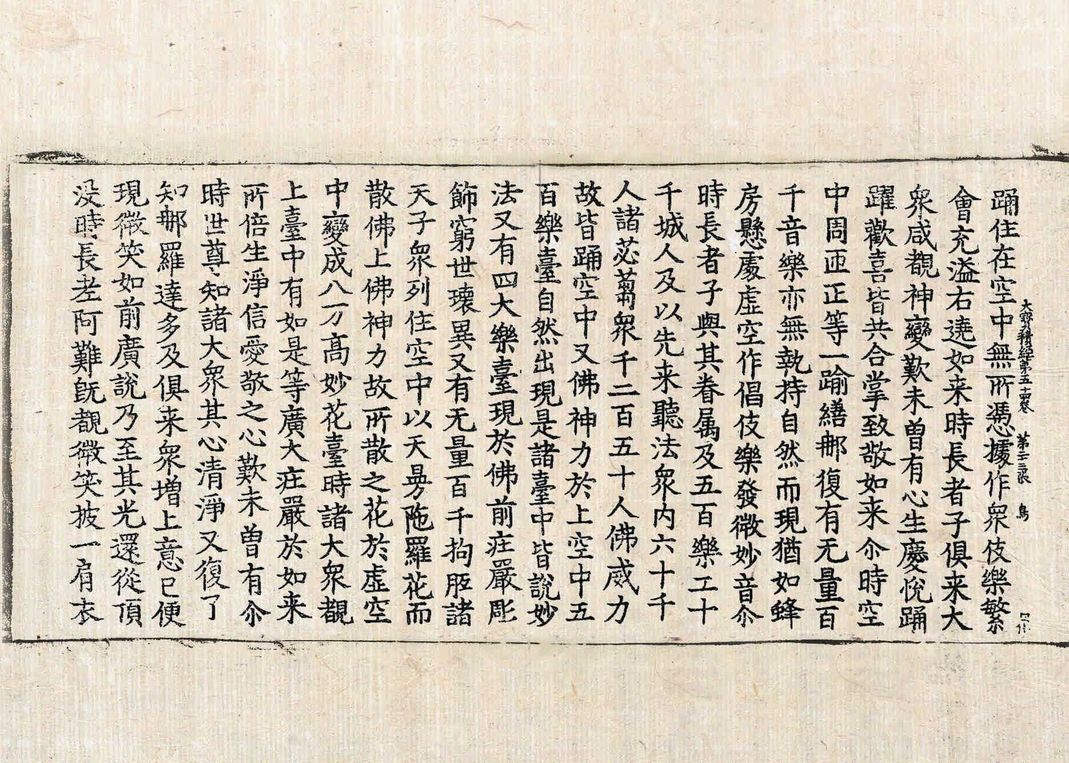 大寶積經第五 第二三張 鳥
踊住在空中無所憑據作衆伎樂繁
會充溢右遶如来時長者子俱来大
衆咸覩神變歎未曾有心生慶悅踊
躍歡喜皆共合掌致敬如来尒時空
中周帀正等一踰繕郍復有无量百
千音樂亦無執持自然而現猶如蜂
房懸處虛空作倡伎樂發微妙音尒
時長者子與其眷属及五百樂工十
千城人及以先来聽法衆内六十千
人諸苾蒭衆千二百五十人佛威力
故皆踊空中又佛神力於上空中五
百樂臺自然出現是諸臺中皆說妙
法又有四大樂臺現於佛前庄嚴彫
飾窮世瓌異又有无量百千拘胝諸
天子衆列住空中以天曼陁羅花而
散佛上佛神力故所散之花於虛空
中變成八万高妙花臺時諸大衆覩
上臺中有如是等廣大庄嚴於如来
所倍生淨信愛敬之心歎未曾有尒
時世尊知諸大衆其心清淨又復了
知郍羅達多及俱来衆增上意已便
現微笑如前廣說乃至其光還從頂
没時長老阿難旣覩微笑披一肩衣